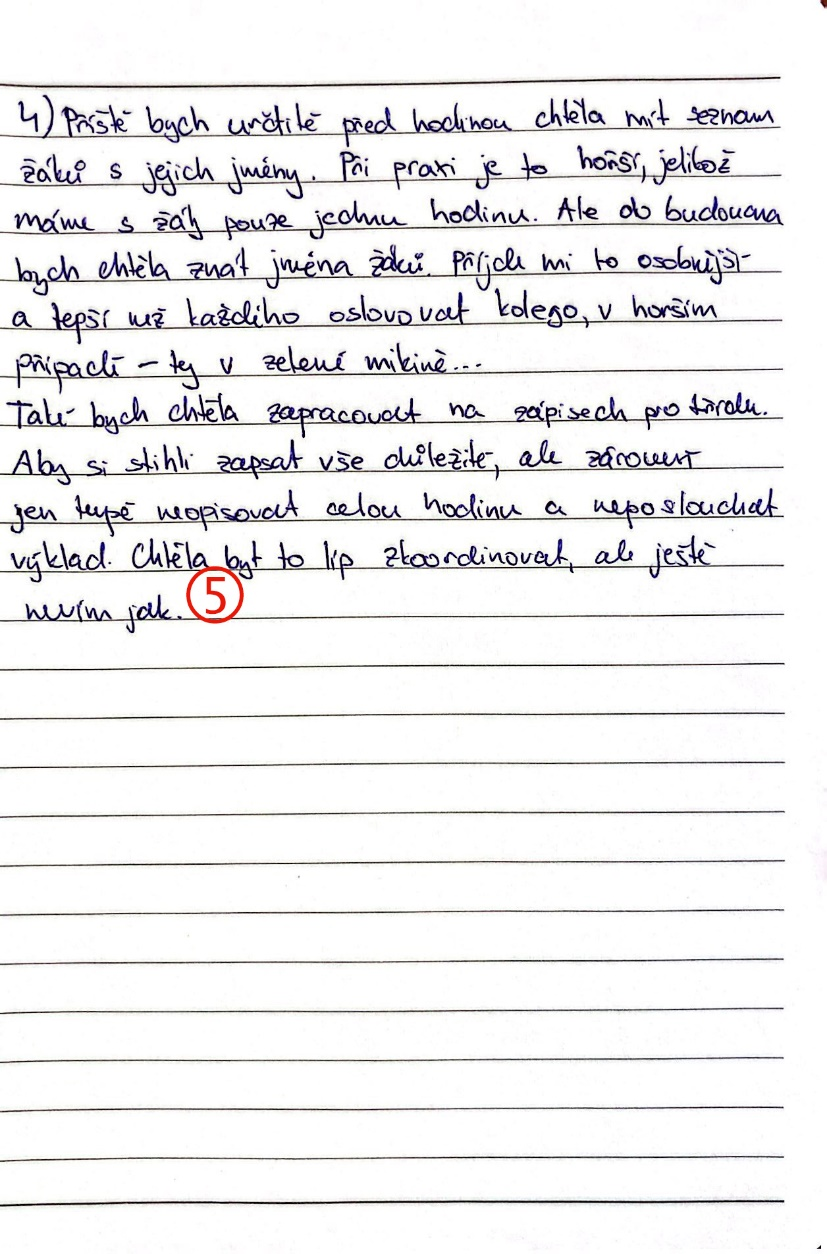 4) Příště bych určitě před hodinou chtěla mít seznam
žáků s jejich jmény. Při praxi je to horší, jelikož
máme s žáky pouze jednu hodinu. Ale do budoucna
bych chtěla znát jména žáků. Přijde mi to osobnější
a lepší než každého oslovovat kolego, v horším
případě – ty v zelené mikině...
Také bych chtěla zapracovat na zápisech pro třídu.
Aby si stihli zapsat vše důležité, ale zároveň
jen tupě neopisovat celou hodinu a neposlouchat
výklad. Chtěla byt to líp zkoordinovat, ale ještě
nevím jak. 5